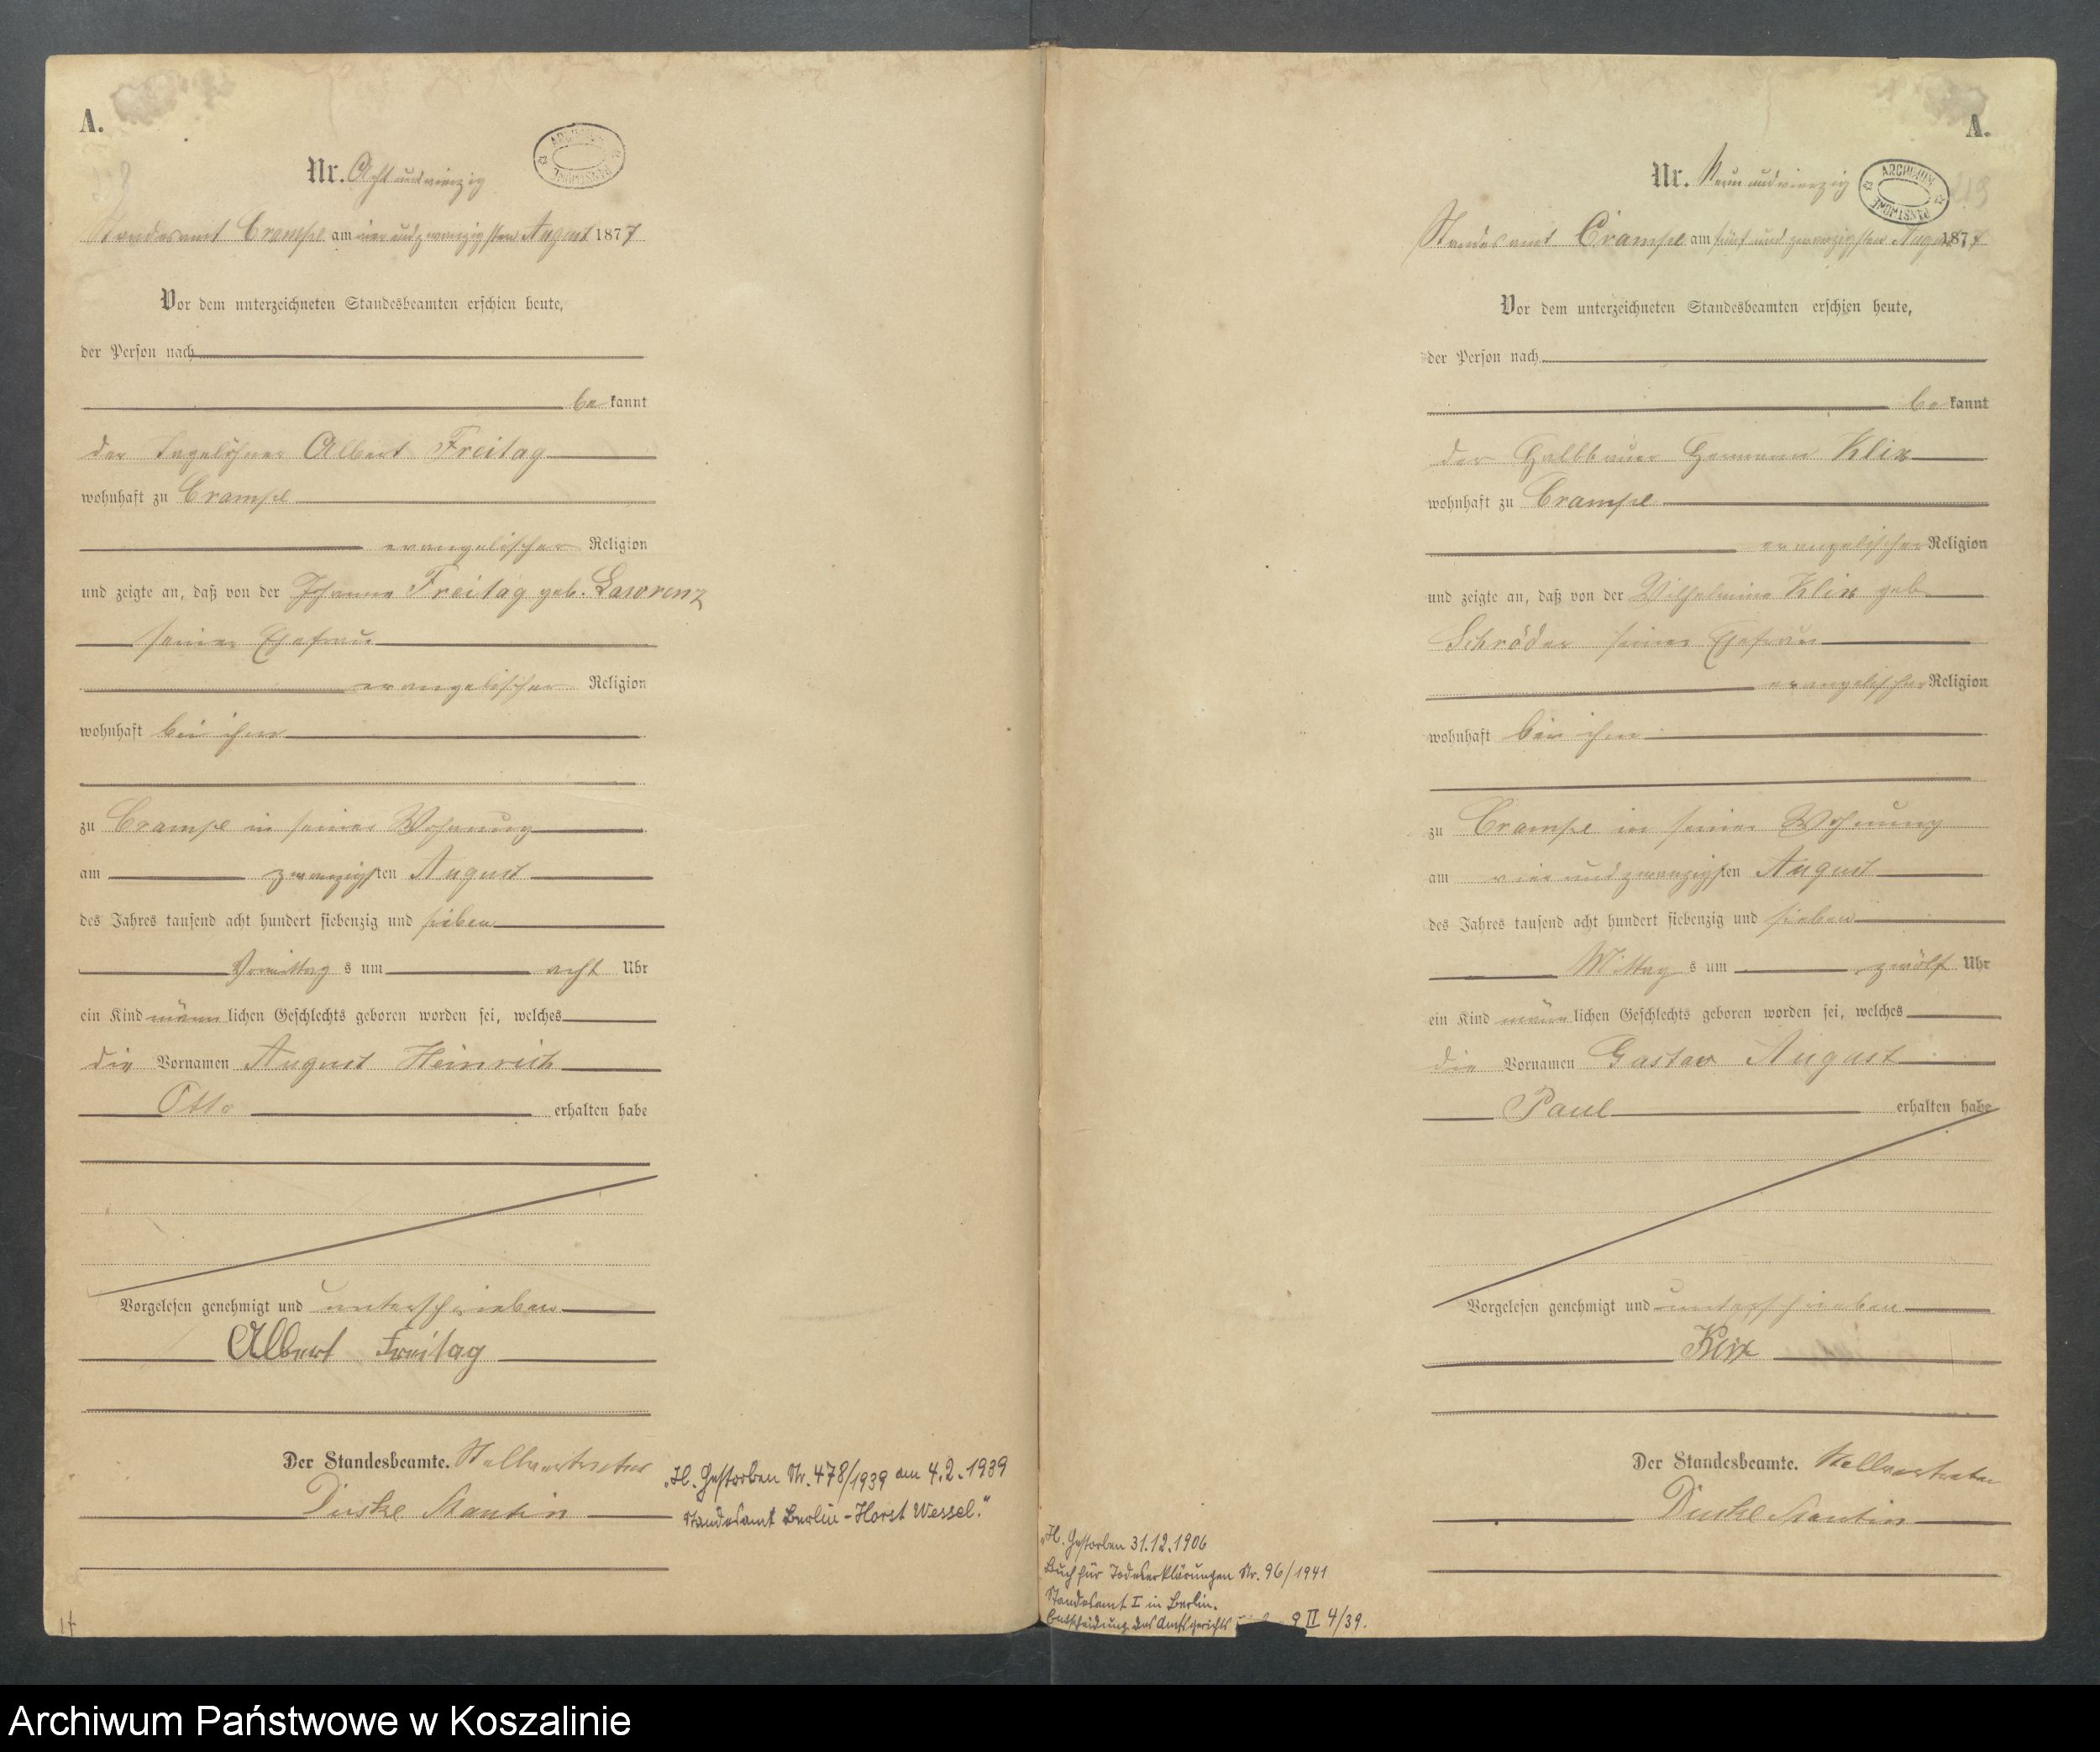 A.
Nr. Acht und vierzig
ARCHIWUM PAŃSTWOWE
Standesamt Crampe am vier und zwanzigsten August 1877
Vor dem unterzeichneten Standesbeamten erschien heute,
der Person nach
be kannt
der Tagelöhner Albert Freitag
wohnhaft zu Crampe
evangelischer Religion
und zeigte an, daß von der Johanna Freitag geb. Lawrenz
seiner Ehefrau
evangelischer Religion
wohnhaft bei ihm
zu Crampe in seiner Wohnung
am zwanzigsten August
des Jahres tausend acht hundert siebenzig und sieben
Vormittag s um acht Uhr
ein Kind männ lichen Geschlechts geboren worden sei, welches
die Vornamen August Heinrich
Otto erhalten habe
Vorgelesen genehmigt und unterschrieben
Albert Freitag
Der Standesbeamte. Stellvertreter
„H. Gestorben Nr. 478/1939 am 4.2.1939
Standesamt Berlin - Horst Wessel."
A.
Nr. Neun und vierzig
ARCHIWUM PAŃSTWOWE
Standesamt Crampe am fünf und zwanzigsten August 1877
Vor dem unterzeichneten Standesbeamten erschien heute,
der Person nach
be kannt
der Halbbauer Hermann Klix
wohnhaft zu Crampe
evangelischer Religion
und zeigte an, daß von der Wilhelmine Klix geb
Schröder seiner Ehefrau
evangelischer Religion
wohnhaft bei ihm
zu Crampe in seiner Wohnung
am vier und zwanzigsten August
des Jahres tausend acht hundert siebenzig und sieben
Mittag s um zwölf Uhr
ein Kind männ lichen Geschlechts geboren worden sei, welches
die Vornamen Gustav August
Paul erhalten habe
Vorgelesen genehmigt und unterschrieben
Klix
Der Standesbeamte. Stellvertreter
„H. Gestorben 31.12.1906
Buch für Todeserklärungen Nr. 96/1941
Standesamt I in Berlin.
Entscheidung des Amtsgerichts 9 II 4/39.
Archiwum Państwowe w Koszalinie